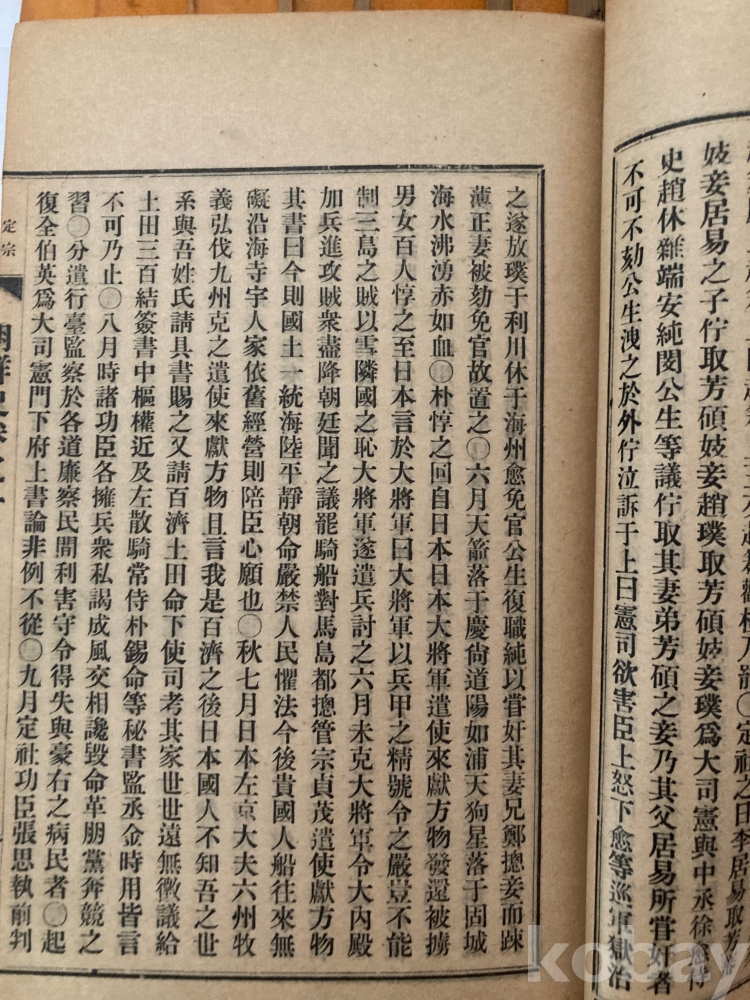 定社之日李居易取芳碩
妓妾居易之子佇取芳碩妓妾趙璞取芳碩妓妾璞爲大司憲與中丞徐愈侍
史趙休雜端安純閔公生等議佇取其妻弟芳碩之妾乃其父居易所嘗奸者
不可不劾公生洩之於外佇泣訴于上曰憲司欲害臣上怒下愈等巡軍獄治
之遂放璞于利川休于海州愈免官公生復職純以嘗奸其妻兄鄭摠妾而踈
薄正妻被劾免官故置之〇六月天箭落于慶尙道陽如浦天狗星落于固城
海水沸湧赤如血〇朴惇之回自日本日本大將軍遣使來獻方物發還被擄
男女百人惇之至日本言於大將軍曰大將軍以兵甲之精號令之嚴豈不能
制三島之賊以雪隣國之恥大將軍遂遣兵討之六月未克大將軍令大內殿
加兵進攻賊衆盡降朝廷聞之議罷騎船對馬島都摠管宗貞茂遣使獻方物
其書曰今則國土一統海陸平靜朝命嚴禁人民懼法今後貴國人船往來無
礙沿海寺宇人家依舊經營則陪臣心願也〇秋七月日本左京大夫六州牧
義弘伐九州克之遣使來獻方物且言我是百濟之後日本國人不知吾之世
系與吾姓氏請具書賜之又請百濟土田命下使司考其家世世遠無徵議給
土田三百結簽書中樞權近及左散騎常侍朴錫命等秘書監丞金時用皆言
不可乃止〇八月時諸功臣各擁兵衆私謁成風交相讒毀命革朋黨奔競之
習〇分遣行臺監察於各道廉察民間利害守令得失與豪右之病民者〇起
復全伯英爲大司憲門下府上書論非例不從〇九月定社功臣張思執前判
定宗
kobay